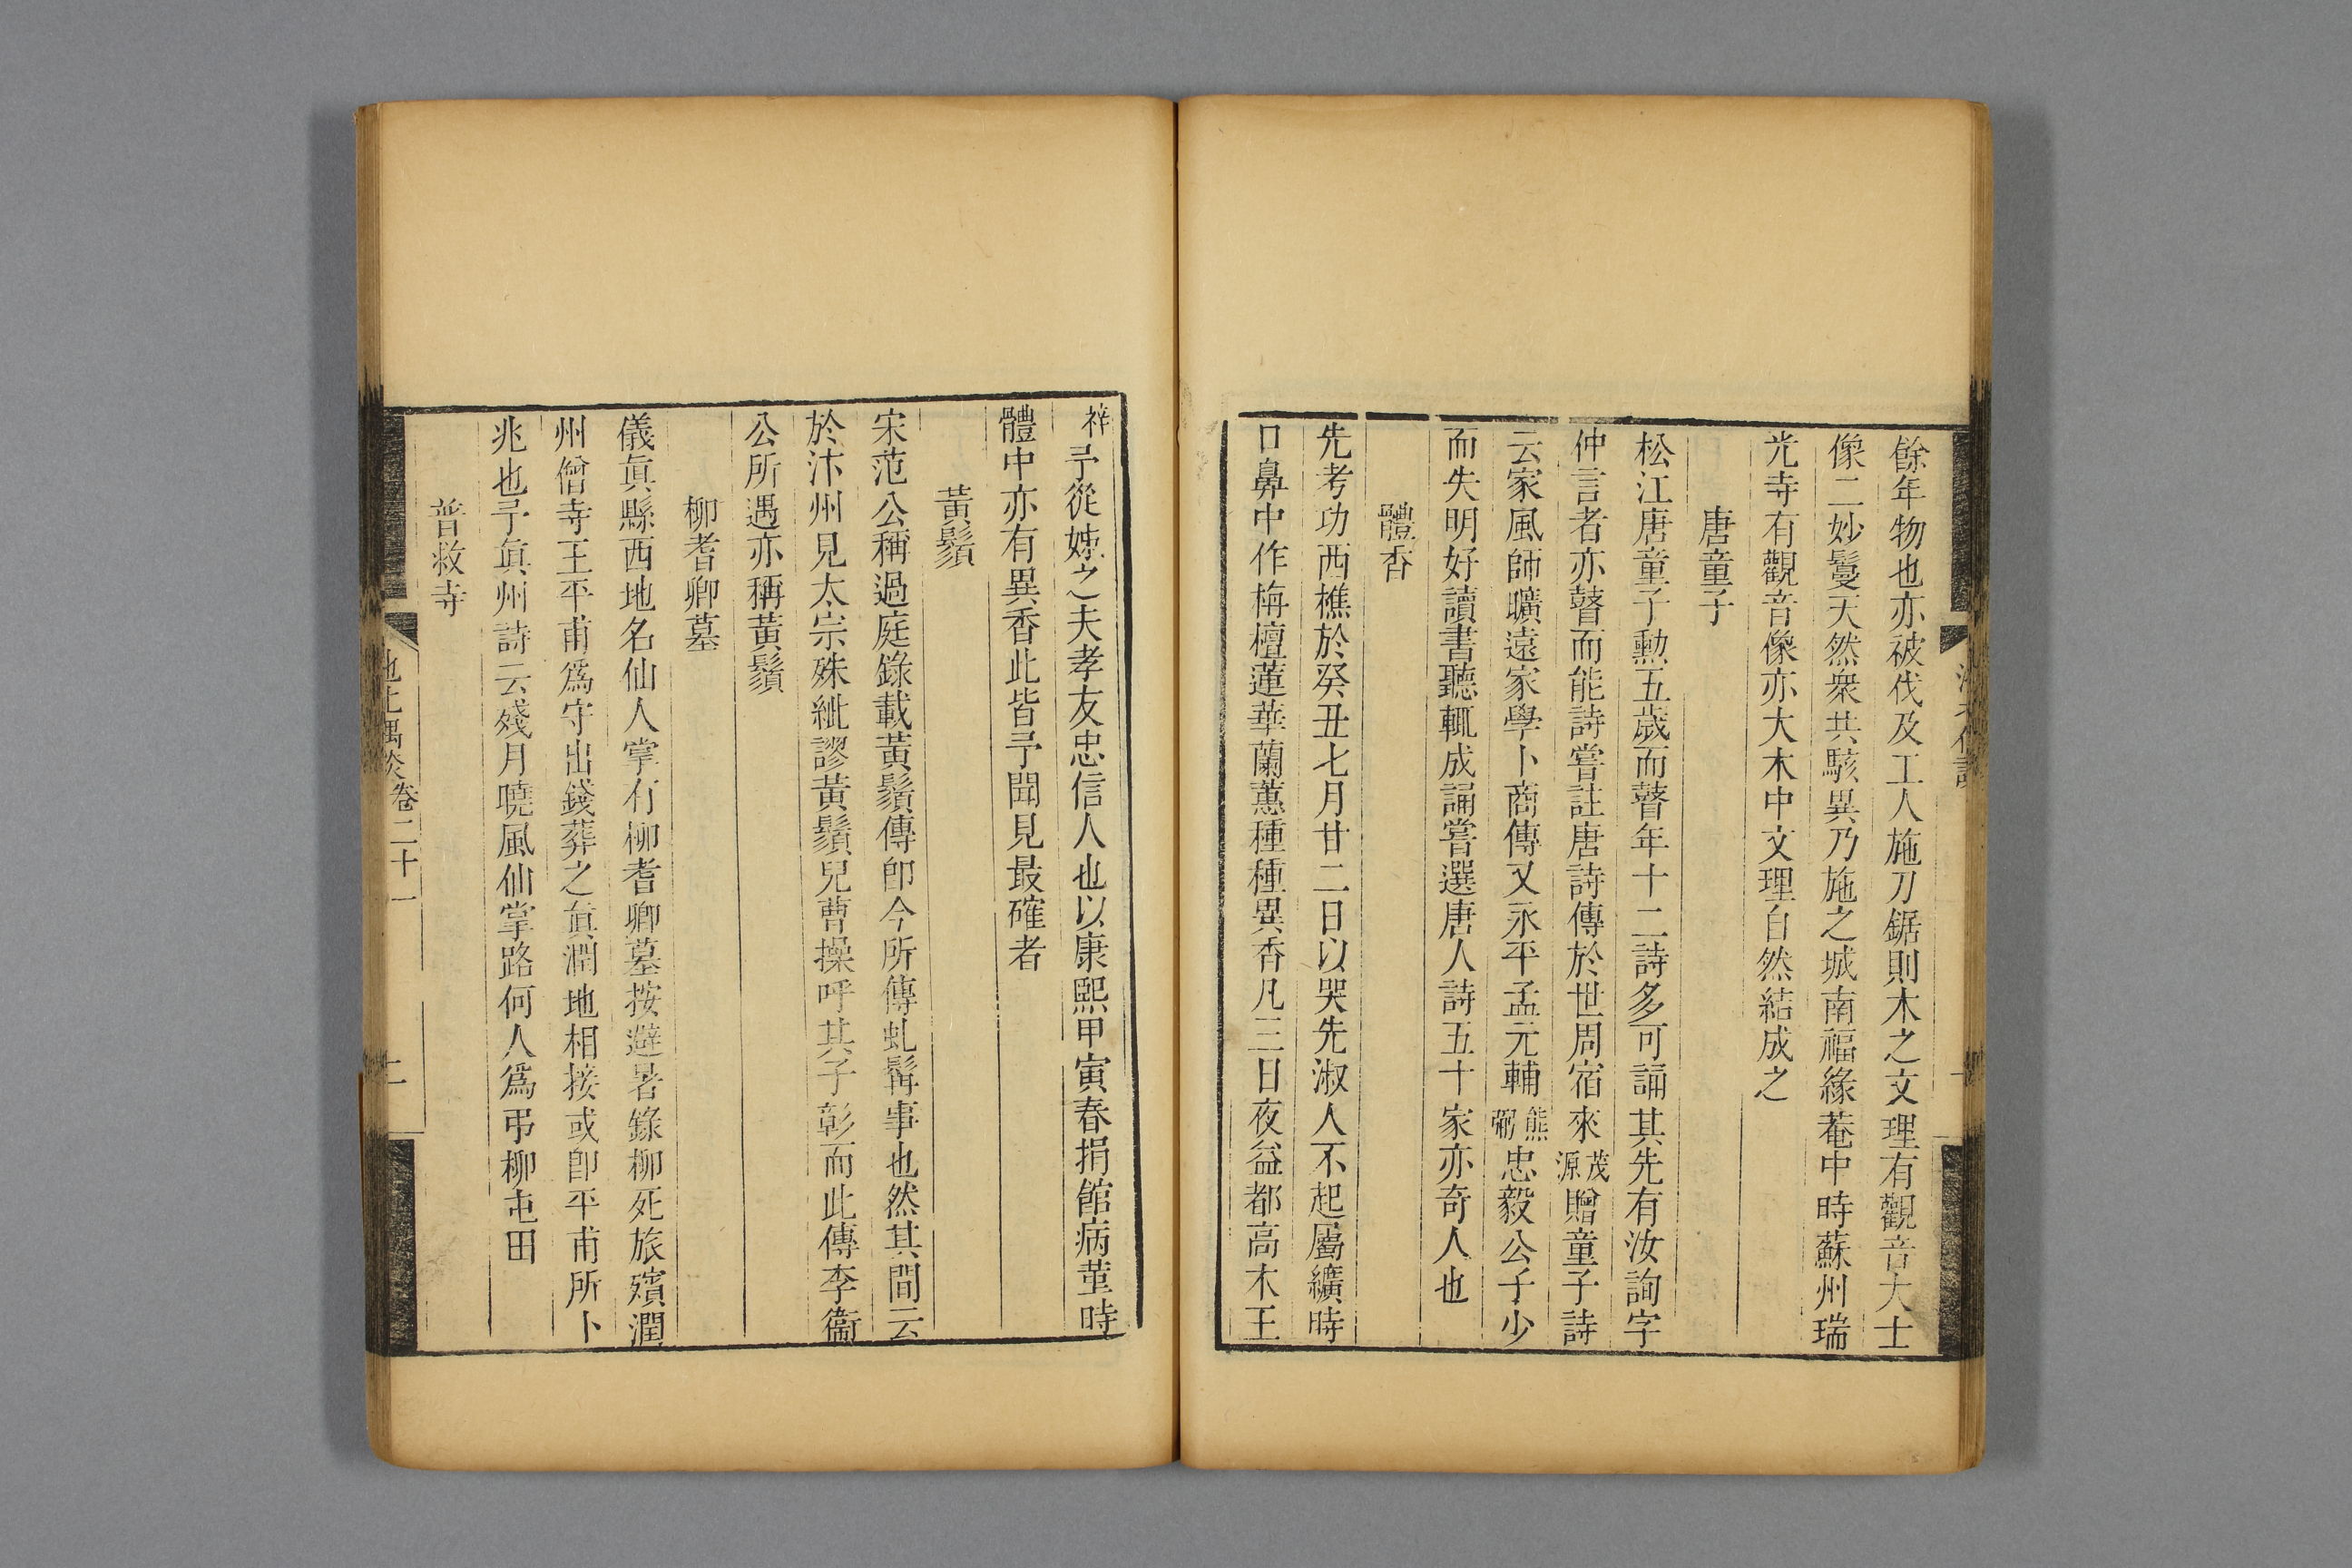 餘年物也亦被伐及工人施刀鋸則木之文理有觀音大士
像二妙鬘天然衆共駭異乃施之城南福緣菴中時蘇州瑞
光寺有觀音像亦大木中文理自然結成之
唐童子
松江唐童子勲五歲而瞽年十二詩多可誦其先有汝詢字
仲言者亦瞽而能詩嘗註唐詩傳於世周宿來茂源贈童子詩
云家風師曠遠家學卜商傳又永平孟元輔熊弼忠毅公子少
而失明好讀書聽輒成誦嘗選唐人詩五十家亦奇人也
體香
先考功西樵於癸丑七月廿二日以哭先淑人不起屬纊時
口鼻中作梅檀蓮華蘭蕙種種異香凡三日夜益都高木王
祥予從姊之夫孝友忠信人也以康熙甲寅春捐館病革時
體中亦有異香此皆予聞見最確者
黃鬚
宋范公稱過庭錄載黃鬚傳卽今所傳虬髯事也然其間云
於汴州見太宗殊紕謬黃鬚兒曹操呼其子彰而此傳李衞
公所遇亦稱黃鬚
柳耆卿墓
儀眞縣西地名仙人掌有柳耆卿墓按避暑錄柳死旅殯潤
州僧寺王平甫爲守出錢葬之眞潤地相接或卽平甫所卜
兆也予眞州詩云殘月曉風仙掌路何人爲弔柳屯田
普救寺
池北偶談卷二十一
二